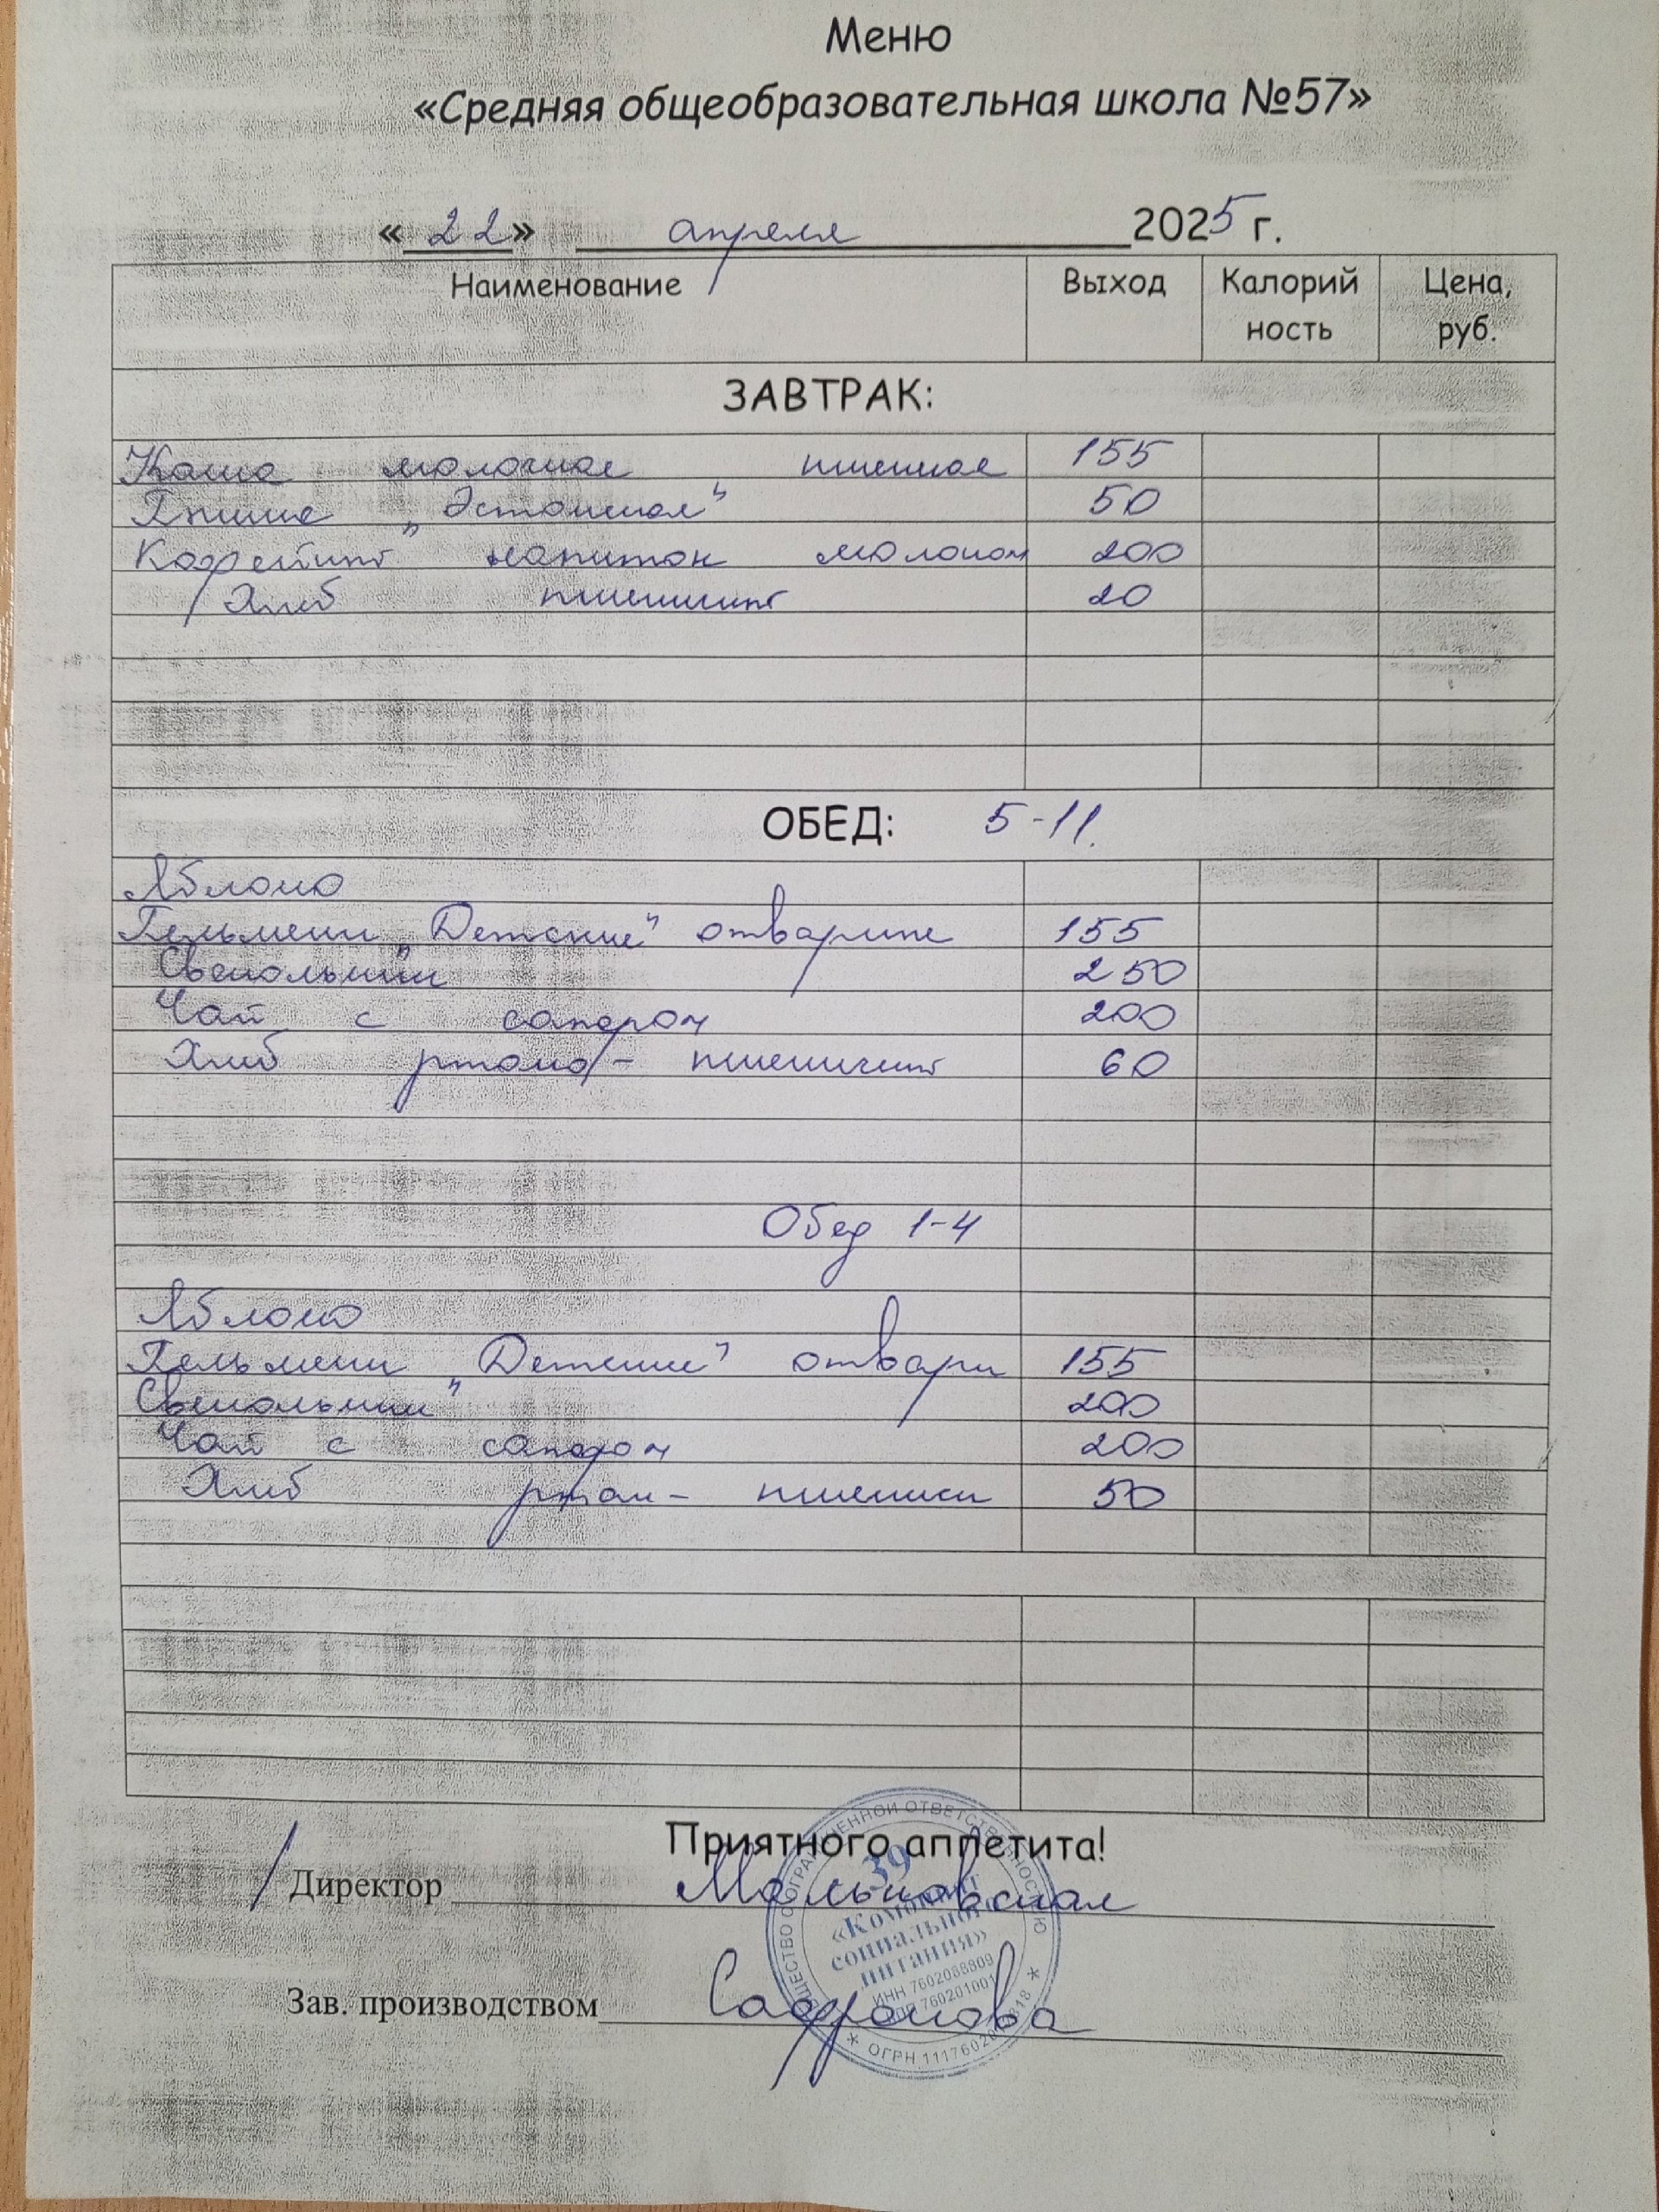 Меню
«Средняя общеобразовательная школа №57»
«22» апреля 2025 г.
Наименование Выход Калорий ность Цена, руб.
ЗАВТРАК:
Каша молочная пшенная 155
"Эстонская" 50
Кофейный напиток молоком 200
Хлеб пшеничный 20
ОБЕД: 5-11.
Яблоко
Пельмени "Детские" отварные 155
Свекольник 250
Чай с сахаром 200
Хлеб ржано- пшеничный 60
Обед 1-4
Яблоко
Пельмени "Детские" отвари 155
Свекольник 200
Чай с сахаром 200
Хлеб ржан- пшеничн 50
Приятного аппетита!
Директор
Зав. производством Сафронова
39
«Комбинат
социального
питания»
ИНН 7602088809
760201001